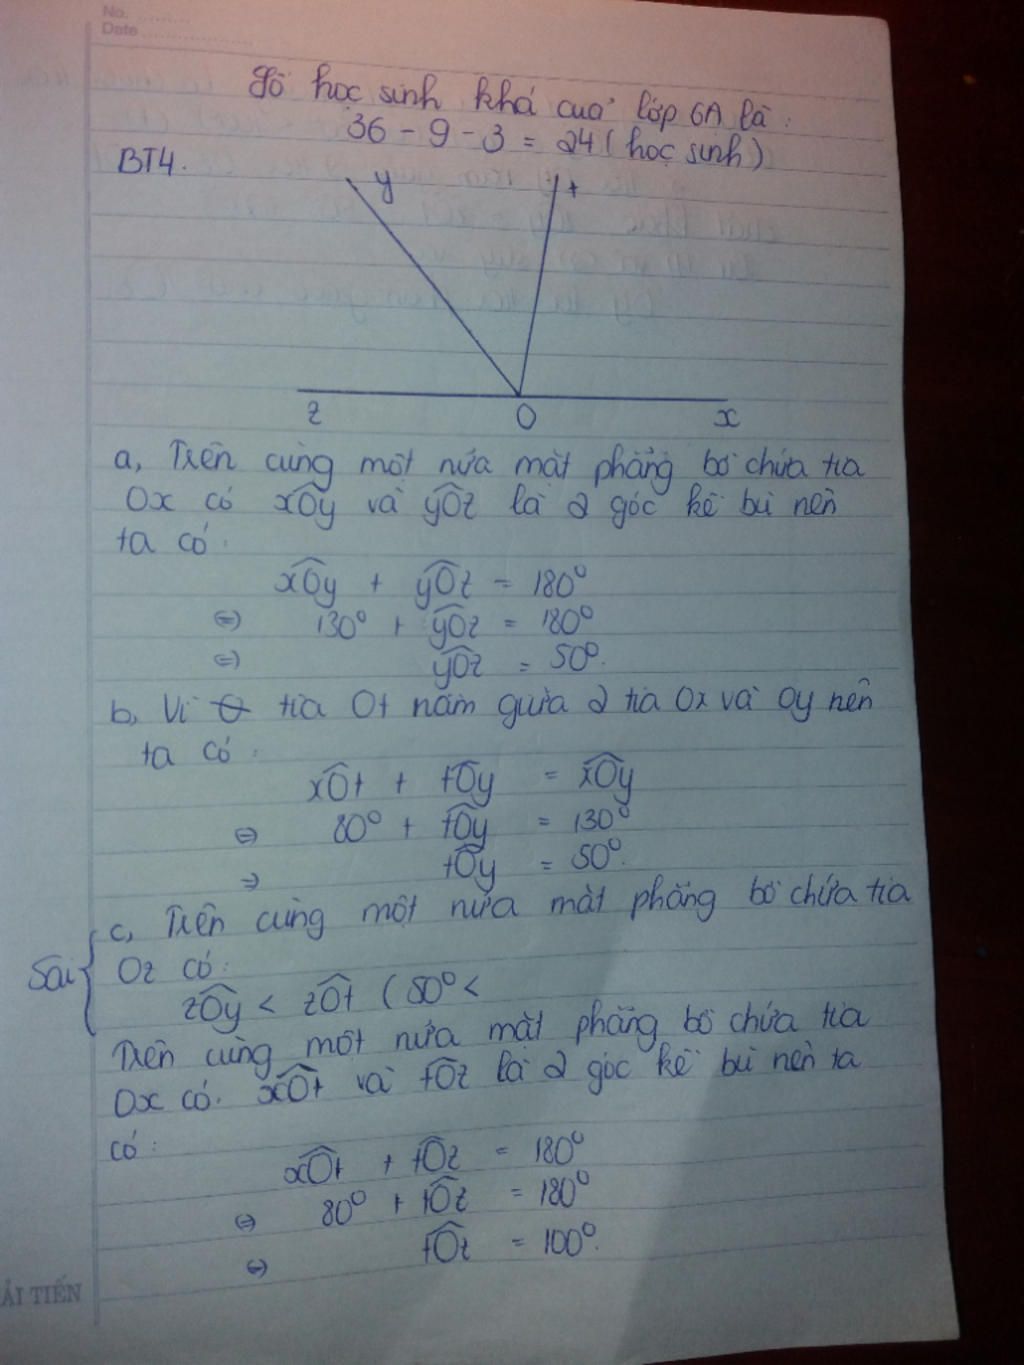 No. ..........
Date ....................
Số học sinh khá của lớp 6A là:
36 - 9 - 3 = 24 ( học sinh )
BT4.
y
t
z
O
x
a, Trên cùng một nửa mặt phẳng bờ chứa tia
Ox có xÔy và yÔz là 2 góc kề bù nên
ta có:
xÔy + yÔz = 180⁰
⇔ 130⁰ + yÔz = 180⁰
⇔ yÔz = 50⁰.
b, Vì tia Ot nằm giữa 2 tia Ox và Oy nên
ta có:
xÔt + tÔy = xÔy
⇔ 80⁰ + tÔy = 130⁰
⇒ tÔy = 50⁰.
c, Trên cùng một nửa mặt phẳng bờ chứa tia
Sai { Oz có:
zÔy < zÔt ( 50⁰ <
Trên cùng một nửa mặt phẳng bờ chứa tia
Ox có. xÔt và tÔz là 2 góc kề bù nên ta
có:
xÔt + tÔz = 180⁰
⇔ 80⁰ + tÔz = 180⁰
⇔ tÔz = 100⁰.
ẢI TIẾN